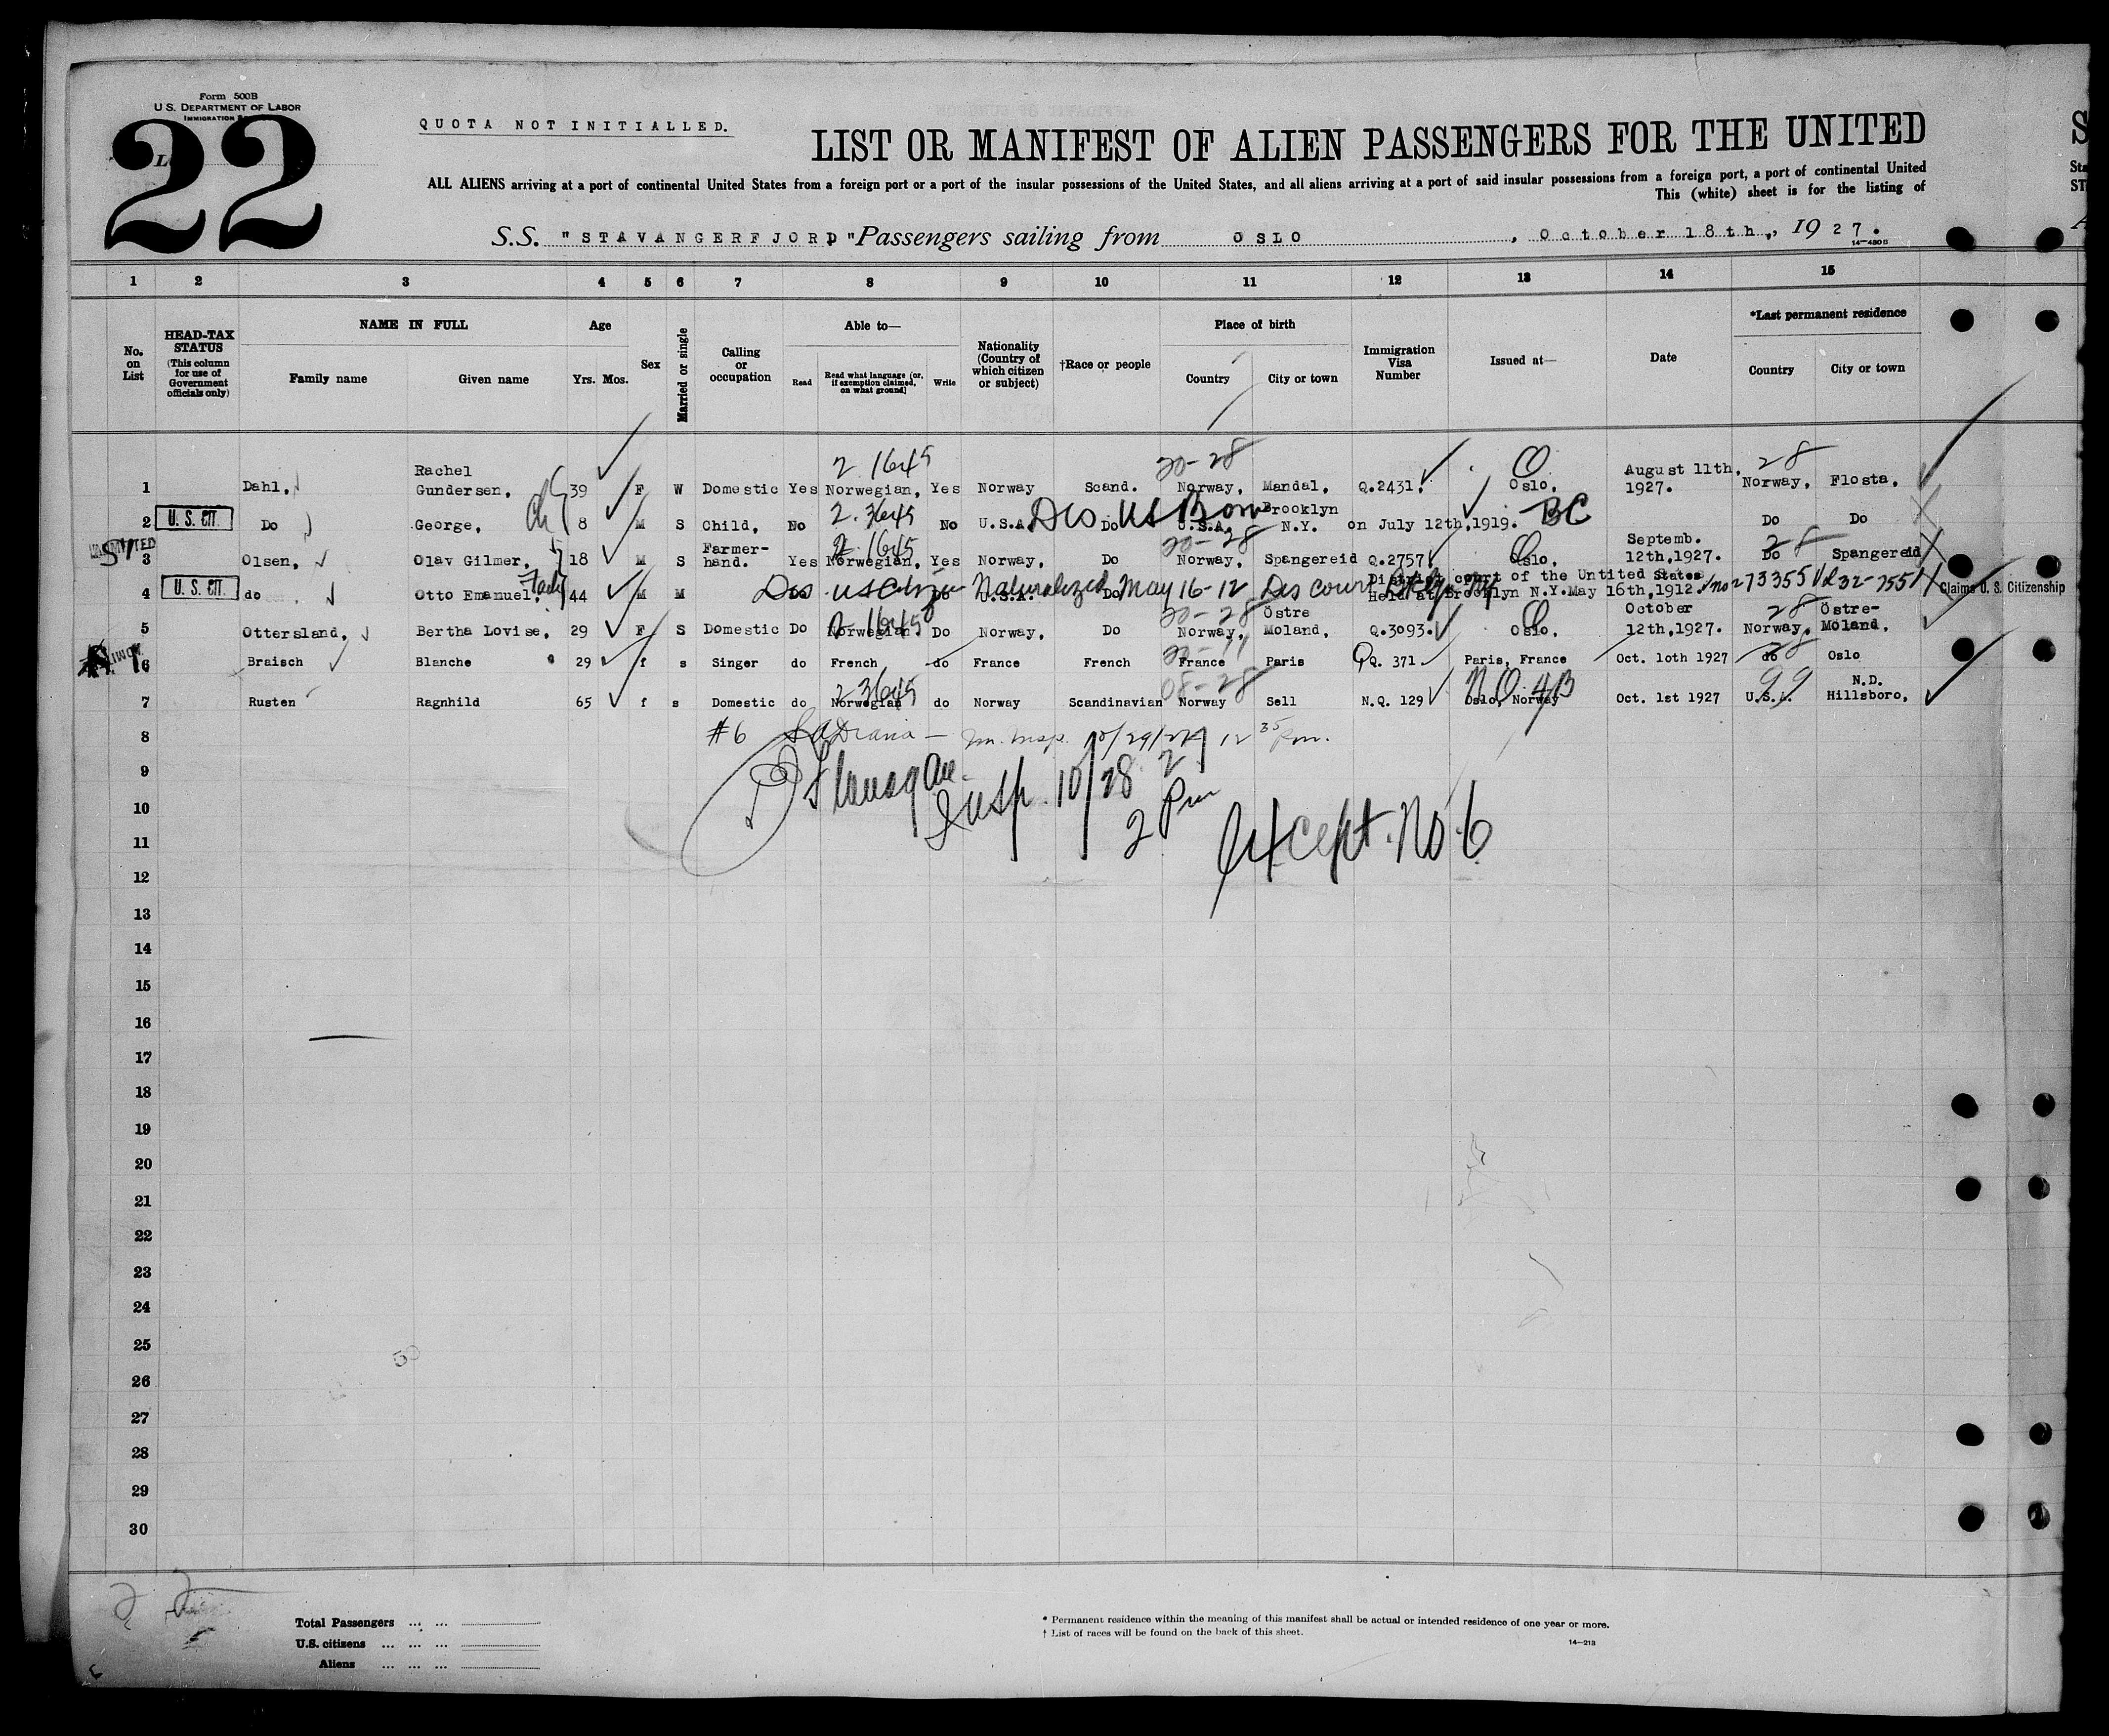 Form 500B
U.S. DEPARTMENT OF LABOR
IMMIGRATION
22
QUOTA NOT INITIALLED.
LIST OR MANIFEST OF ALIEN PASSENGERS FOR THE UNITED
ALL ALIENS arriving at a port of continental United States from a foreign port or a port of the insular possessions of the United States, and all aliens arriving at a port of said insular possessions from a foreign port, a port of continental United
This (white) sheet is for the listing of
S.S. "STAVANGERFJORD" Passengers sailing from OSLO, October 18th, 1927.
14-480B
1 2 3 4 5 6 7 8 9 10 11 12 13 14 15
No. on List
HEAD-TAX STATUS (This column for use of Government officials only)
NAME IN FULL
Family name Given name
Age
Yrs. Mos.
Sex
Married or single
Calling or occupation
Able to—
Read
Read what language [or, if exemption claimed, on what ground]
Write
Nationality (Country of which citizen or subject)
†Race or people
Place of birth
Country City or town
Immigration Visa Number
Issued at—
Date
*Last permanent residence
Country City or town
2 1645 20-28 O 28
1 Dahl, Rachel Gundersen, 39 F W Domestic Yes Norwegian, Yes Norway Scand. Norway, Mandal, Q.2431. Oslo, August 11th, 1927. Norway, Flosta.
2.3645 Des US Born BC
2 U. S. CIT. Do George, 8 M S Child, No No U.S.A. Do U.S.A. Brooklyn N.Y. on July 12th, 1919. Do Do
2 1645 20-28 O 28
3 Olsen, Olav Gilmer, 18 M S Farmer-hand. Yes Norwegian, Yes Norway, Do Norway, Spangereid Q.2757 Oslo, Septemb. 12th, 1927. Do Spangereid
Des US Citizen Naturalized May 16-12 Des court Bklyn NY no 273355 Vol 32-7551
4 U. S. CIT. do Otto Emanuel, 44 M M U.S.A. Do District court of the Untited States Held at Brooklyn N.Y. May 16th, 1912. Claims U. S. Citizenship
2 1645 20-28 O 28
5 Ottersland, Bertha Lovise, 29 F S Domestic Do Norwegian Do Norway, Do Norway, Östre Moland, Q.3093. Oslo. October 12th, 1927. Norway, Östre-Moland.
20-11 28
6 Braisch Blanche 29 f s Singer do French do France French France Paris Q. 371 Paris, France Oct. 10th 1927 do Oslo
2 3645 08-28 NQ 4B 99
7 Rusten Ragnhild 65 f s Domestic do Norwegian do Norway Scandinavian Norway Sell N.Q. 129 Oslo, Norway Oct. 1st 1927 U.S.A. N.D. Hillsboro,
8 #6 Im. Insp. 10/29/27 12 35 pm.
9 Flanagan
10 Insp. 10/28 27
11 2 Pm
Except No 6
12
13
14
15
16
17
18
19
20
21
22
23
24
25
50
26
27
28
29
30
Total Passengers
U.S. citizens
Aliens
* Permanent residence within the meaning of this manifest shall be actual or intended residence of one year or more.
† List of races will be found on the back of this sheet.
14-213